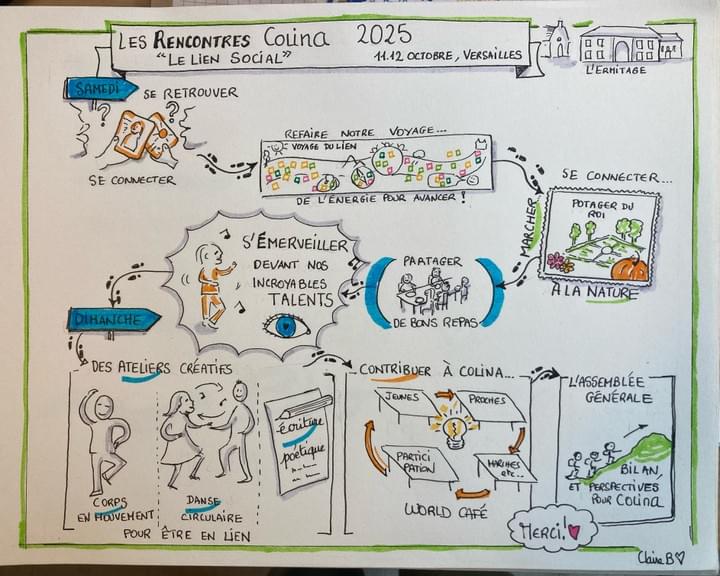 LES RENCONTRES COLINA 2025
"LE LIEN SOCIAL"
11.12 OCTOBRE, VERSAILLES
L'ERMITAGE
SAMEDI
SE RETROUVER
? ?
SE CONNECTER
REFAIRE NOTRE VOYAGE...
VOYAGE DU LIEN
DE L'ÉNERGIE POUR AVANCER !
MARCHER
SE CONNECTER...
POTAGER DU
ROI
À LA NATURE
PARTAGER
DE BONS REPAS
S'ÉMERVEILLER
DEVANT NOS
INCROYABLES
TALENTS
DIMANCHE
DES ATELIERS CRÉATIFS
CORPS
EN MOUVEMENT
DANSE
CIRCULAIRE
écriture
poétique
POUR ÊTRE EN LIEN
CONTRIBUER À COLINA...
JEUNES
PROCHES
PARTICI
PATION
MARCHES
etc...
WORLD CAFÉ
L'ASSEMBLÉE
GÉNÉRALE
BILAN
ET PERSPECTIVES
POUR COLINA
MERCI!
Claire B